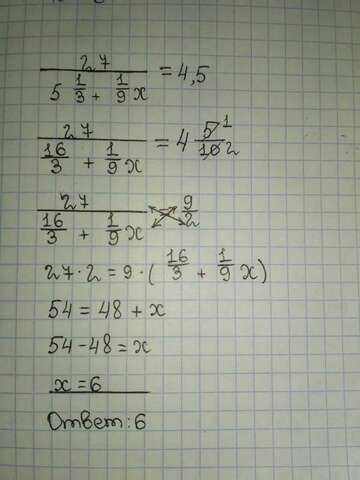 27 / (5 1/3 + 1/9 x) = 4,5
27 / (16/3 + 1/9 x) = 4 5/10 1/2
27 / (16/3 + 1/9 x) 9/2
27·2 = 9·(16/3 + 1/9 x)
54 = 48 + x
54 - 48 = x
x = 6
Ответ: 6